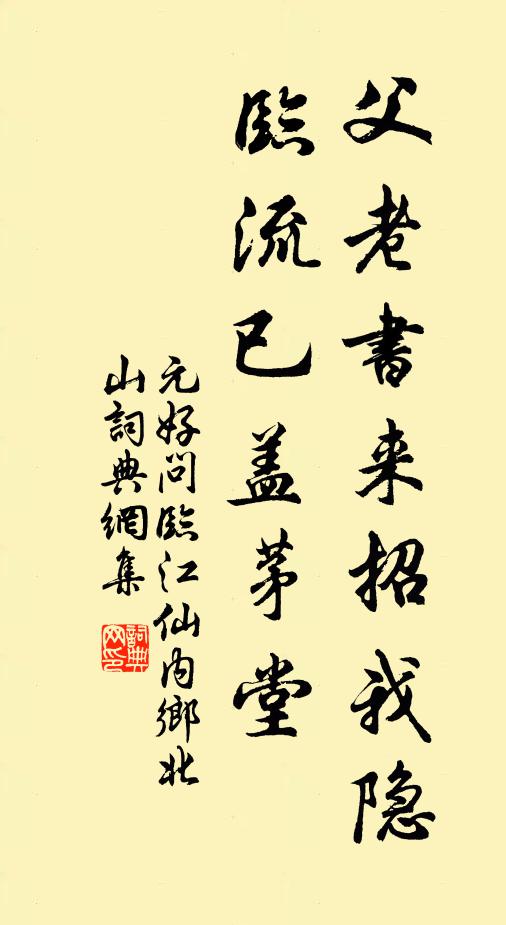 父老書来招我隐
臨流已蓋茅堂
元好问臨江仙内鄉北
山詞典網集
詞典网印